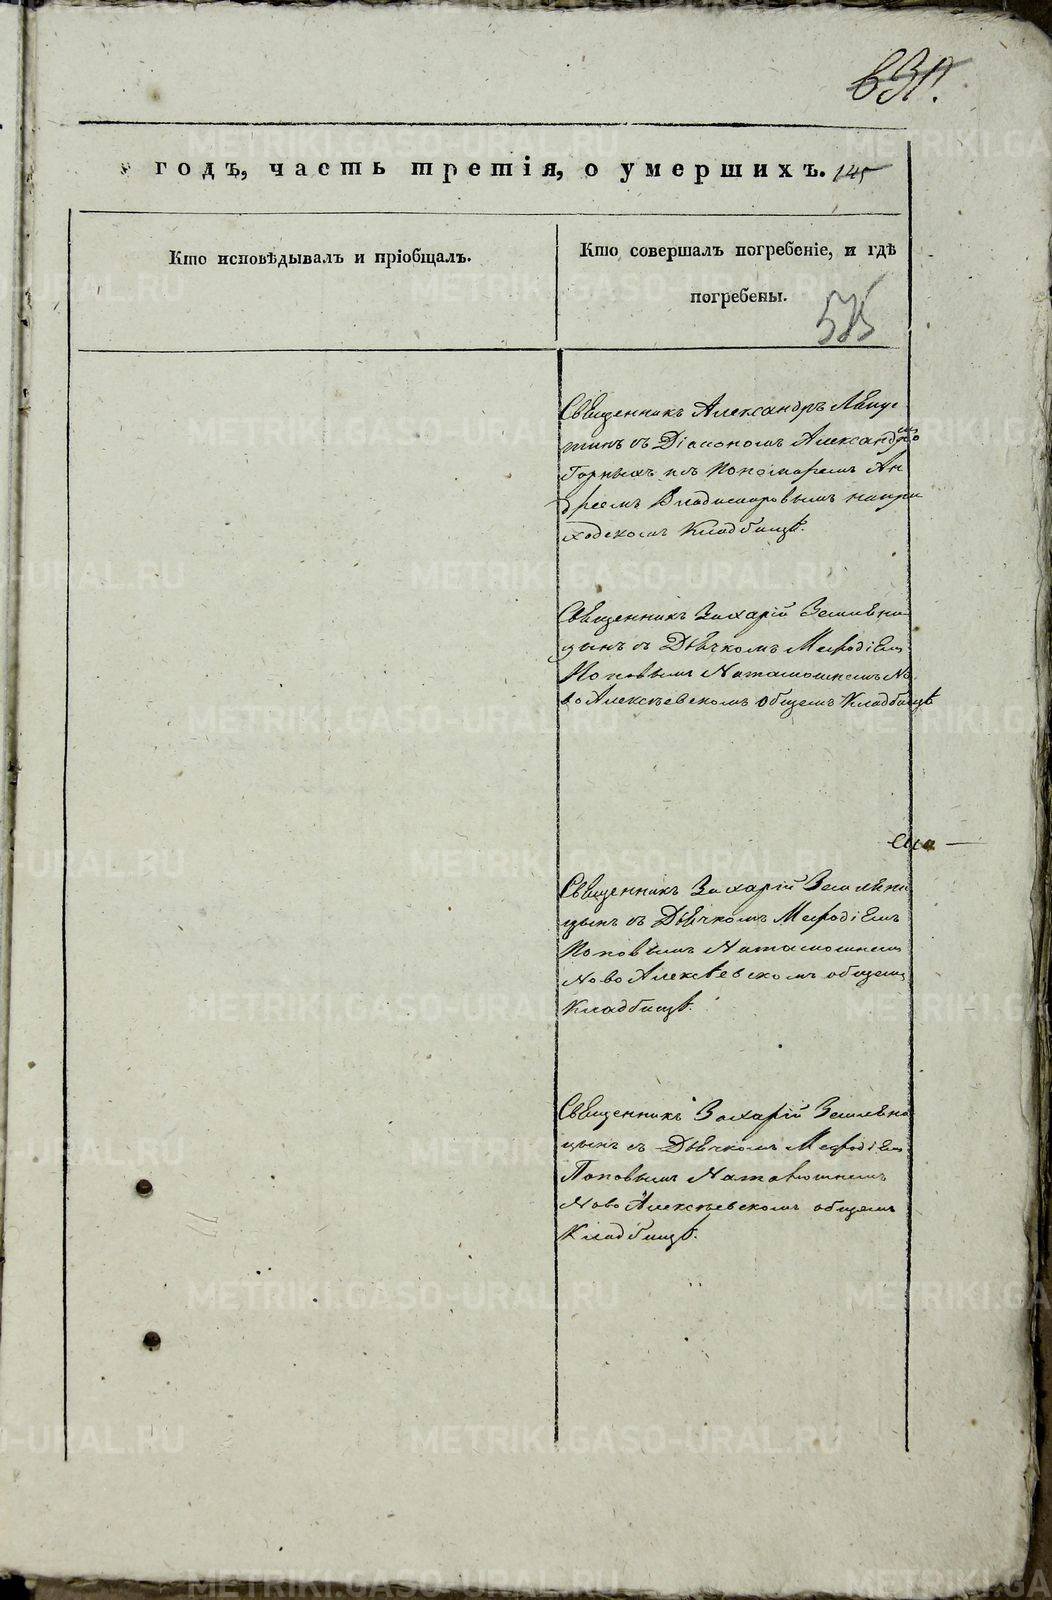 годъ, часть третія, о умершихъ. 145
Кто исповѣдывалъ и пріобщалъ.
Кто совершалъ погребеніе, и гдѣ
погребены.
575
Священникъ Александръ
съ Діакономъ Александромъ
Горныхъ и съ Пономаремъ Ан
дреемъ Владимировымъ на при
ходскомъ Кладбищѣ.
Священникъ Захарій Земляни
цынъ съ Дьячкомъ Мефодіемъ
Поповымъ На тамошнемъ Но
во Алексѣевскомъ общемъ Кладбищѣ
Священникъ Захарій Земляни
цынъ съ Дьячкомъ Мефодіемъ
Поповымъ На тамошнемъ
Ново Алексѣевскомъ общемъ
Кладбищѣ.
Священникъ Захарій Земляни
цынъ съ Дьячкомъ Мефодіемъ
Поповымъ На тамошнемъ
Ново Алексѣевскомъ общемъ
Кладбищѣ.
METRIKI.GASO-URAL.RU